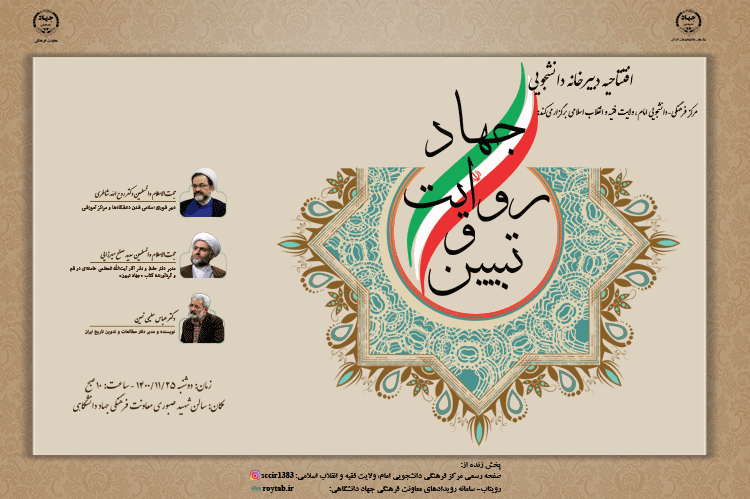 جهاد
معاونت فرهنگی
جهاد
افتتاحیه دبیرخانه دانشجویی
مرکز فرهنگی-دانشجویی امام، ولایت فقیه و انقلاب اسلامی برگزاری می‌کند:
جهاد
روایت
و
تبیین
حجت‌الاسلام والمسلمین دکتر روح الله شاطری
دبیر شورای اسلامی شدن دانشگاه‌ها و مراکز آموزشی
حجت‌الاسلام والمسلمین سعید صلح میرزایی
مدیر دفتر حفظ و نشر آثار آیت‌الله العظمی خامنه‌ای در قم
و گردآورنده کتاب «جهاد تبیین»
دکتر عباس سلیمی نمین
نویسنده و مدیر دفتر مطالعات و تدوین تاریخ ایران
زمان: دوشنبه ۱۴۰۰/۱۱/۲۵ - ساعت: ۱۰ صبح
مکان: سالن شهید صبوری معاونت فرهنگی جهاد دانشگاهی
پخش زنده از:
صفحه رسمی مرکز فرهنگی دانشجویی امام، ولایت فقیه و انقلاب اسلامی: sccir1383
رویتاب- سامانه رویدادهای معاونت فرهنگی جهاد دانشگاهی: roytab.ir